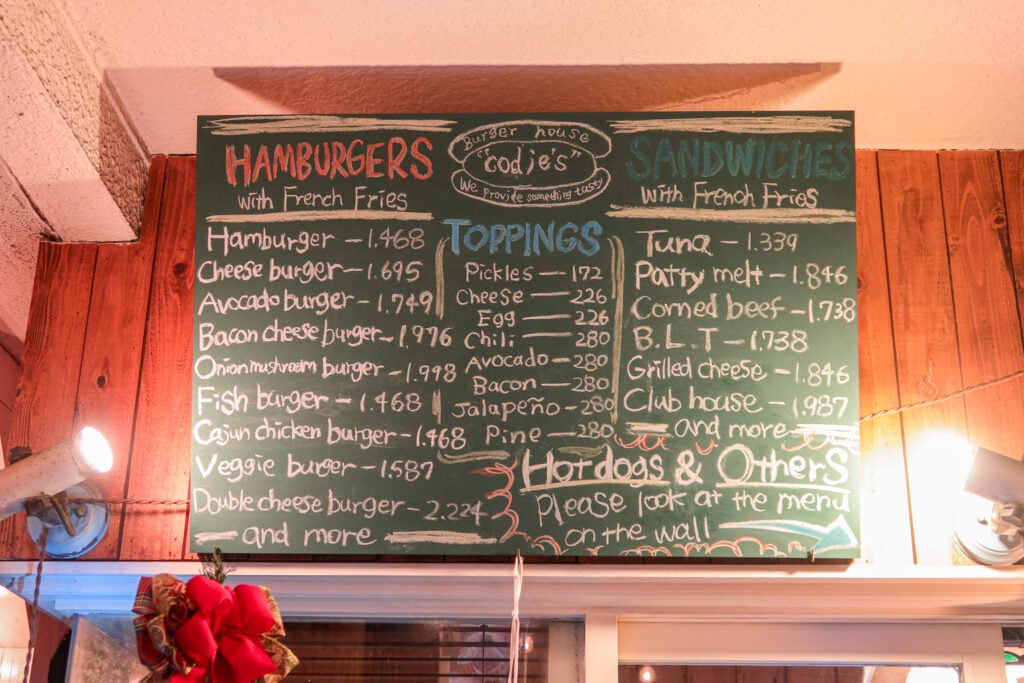 Burger house
"codie's"
We provide something tasty
HAMBURGERS
with French Fries
Hamburger - 1.468
Cheese burger - 1.695
Avocado burger - 1.749
Bacon cheese burger - 1.976
Onion mushroom burger - 1.998
Fish burger - 1.468
Cajun chicken burger - 1.468
Veggie burger - 1.587
Double cheese burger - 2.224
and more
TOPPINGS
Pickles - 172
Cheese - 226
Egg - 226
Chili - 280
Avocado - 280
Bacon - 280
Jalapeño - 280
Pine - 280
SANDWICHES
with French Fries
Tuna - 1.339
Patty melt - 1.846
Corned beef - 1.738
B.L.T - 1.738
Grilled cheese - 1.846
Club house - 1.987
and more
Hotdogs & Others
Please look at the menu
on the wall